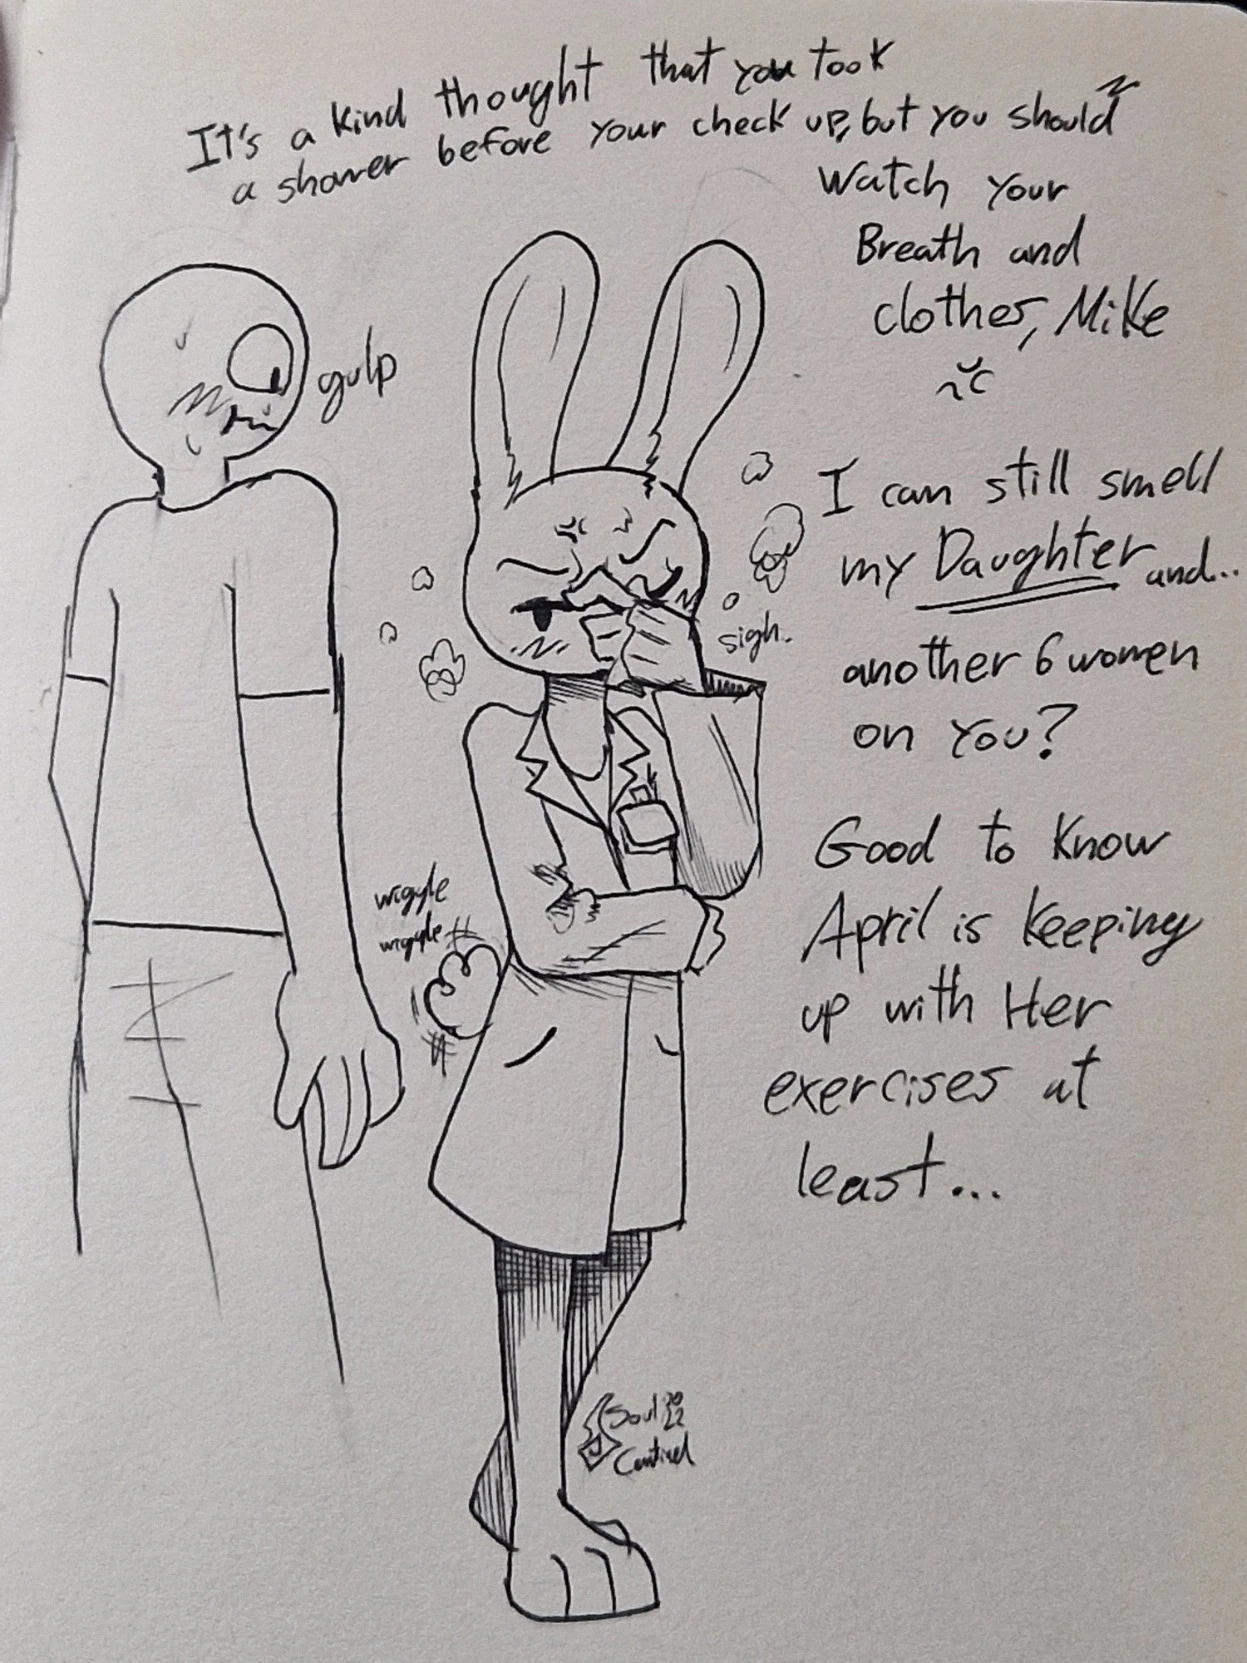 It's a kind thought that you took
a shower before your check up, but you should
watch your
Breath and
clothes, Mike
gulp
I can still smell
my Daughter and...
sigh.
another 6 women
on you?
Good to know
wiggle
wiggle
April is keeping
up with Her
exercises at
least...
Soul 20
22
Centinel